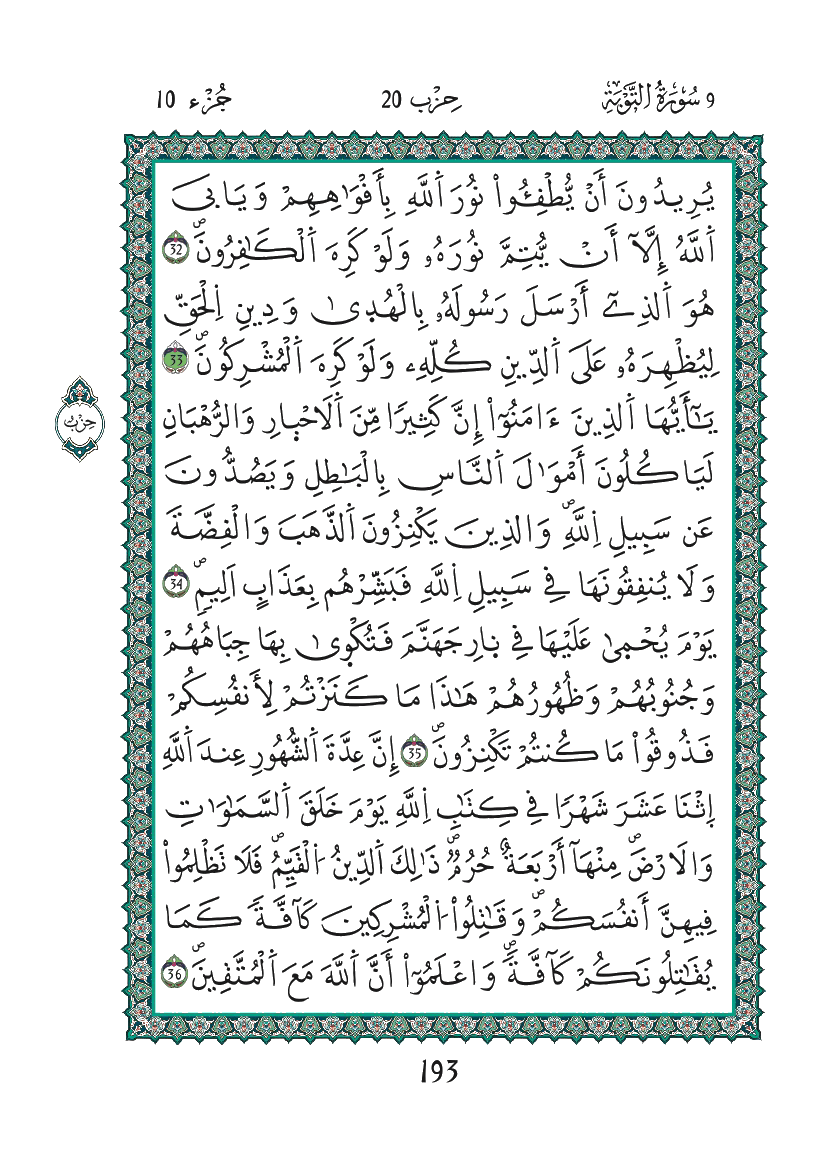 9 سُورَةُ التَّوْبَةِ حِزْب 20 جُزْء 10
يُرِيدُونَ أَنْ يُّطْفِـُٔواْ نُورَ اَ۬للَّهِ بِأَفْوَٰهِهِمْ وَيَابَى
اَ۬للَّهُ إِلَّآ أَنْ يُّتِمَّ نُورَهُۥ وَلَوْ كَرِهَ اَ۬لْكَٰفِرُونَۖ 32
هُوَ اَ۬لذِےٓ أَرْسَلَ رَسُولَهُۥ بِالْهُد۪ىٰ وَدِينِ اِ۬لْحَقِّ
لِيُظْهِرَهُۥ عَلَى اَ۬لدِّينِ كُلِّهِۦ وَلَوْ كَرِهَ اَ۬لْمُشْرِكُونَۖ 33
يَٰٓأَيُّهَا اَ۬لذِينَ ءَامَنُوٓاْ إِنَّ كَثِيرًا مِّنَ اَ۬لَاحْب۪ارِ وَالرُّهْبَانِ
لَيَاكُلُونَ أَمْوَٰلَ اَ۬لنَّاسِ بِالْبَٰطِلِ وَيَصُدُّونَ
عَن سَبِيلِ اِ۬للَّهِۖ وَالذِينَ يَكْنِزُونَ اَ۬لذَّهَبَ وَالْفِضَّةَ
وَلَا يُنفِقُونَهَا فِے سَبِيلِ اِ۬للَّهِ فَبَشِّرْهُم بِعَذَابٍ اَلِيمٖۖ 34
يَوْمَ يُحْم۪ىٰ عَلَيْهَا فِے ن۪ارِ جَهَنَّمَ فَتُكْو۪ىٰ بِهَا جِبَاهُهُمْ
وَجُنُوبُهُمْ وَظُهُورُهُمْ هَٰذَا مَا كَنَزْتُمْ لِأَنفُسِكُمْ
فَذُوقُواْ مَا كُنتُمْ تَكْنِزُونَۖ 35 إِنَّ عِدَّةَ اَ۬لشُّهُورِ عِندَ اَ۬للَّهِ
اِ۪ثْنَا عَشَرَ شَهْرًا فِے كِتَٰبِ اِ۬للَّهِ يَوْمَ خَلَقَ اَ۬لسَّمَٰوَٰتِ
وَالَارْضَۖ مِنْهَآ أَرْبَعَةٌ حُرُمٞۖ ذَٰلِكَ اَ۬لدِّينُ اُ۬لْقَيِّمُۖ فَلَا تَظْلِمُواْ
فِيهِنَّ أَنفُسَكُمْۖ وَقَٰتِلُواْ اُ۬لْمُشْرِكِينَ كَآفَّةٗ كَمَا
يُقَٰتِلُونَكُمْ كَآفَّةٗۖ وَاعْلَمُوٓاْ أَنَّ اَ۬للَّهَ مَعَ اَ۬لْمُتَّقِينَۖ 36
حِزْب
193